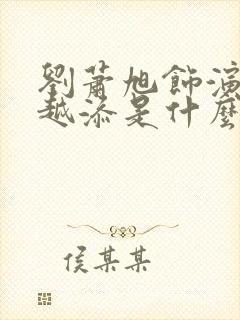 劉蕭旭飾演
越添是什麼
侯某某